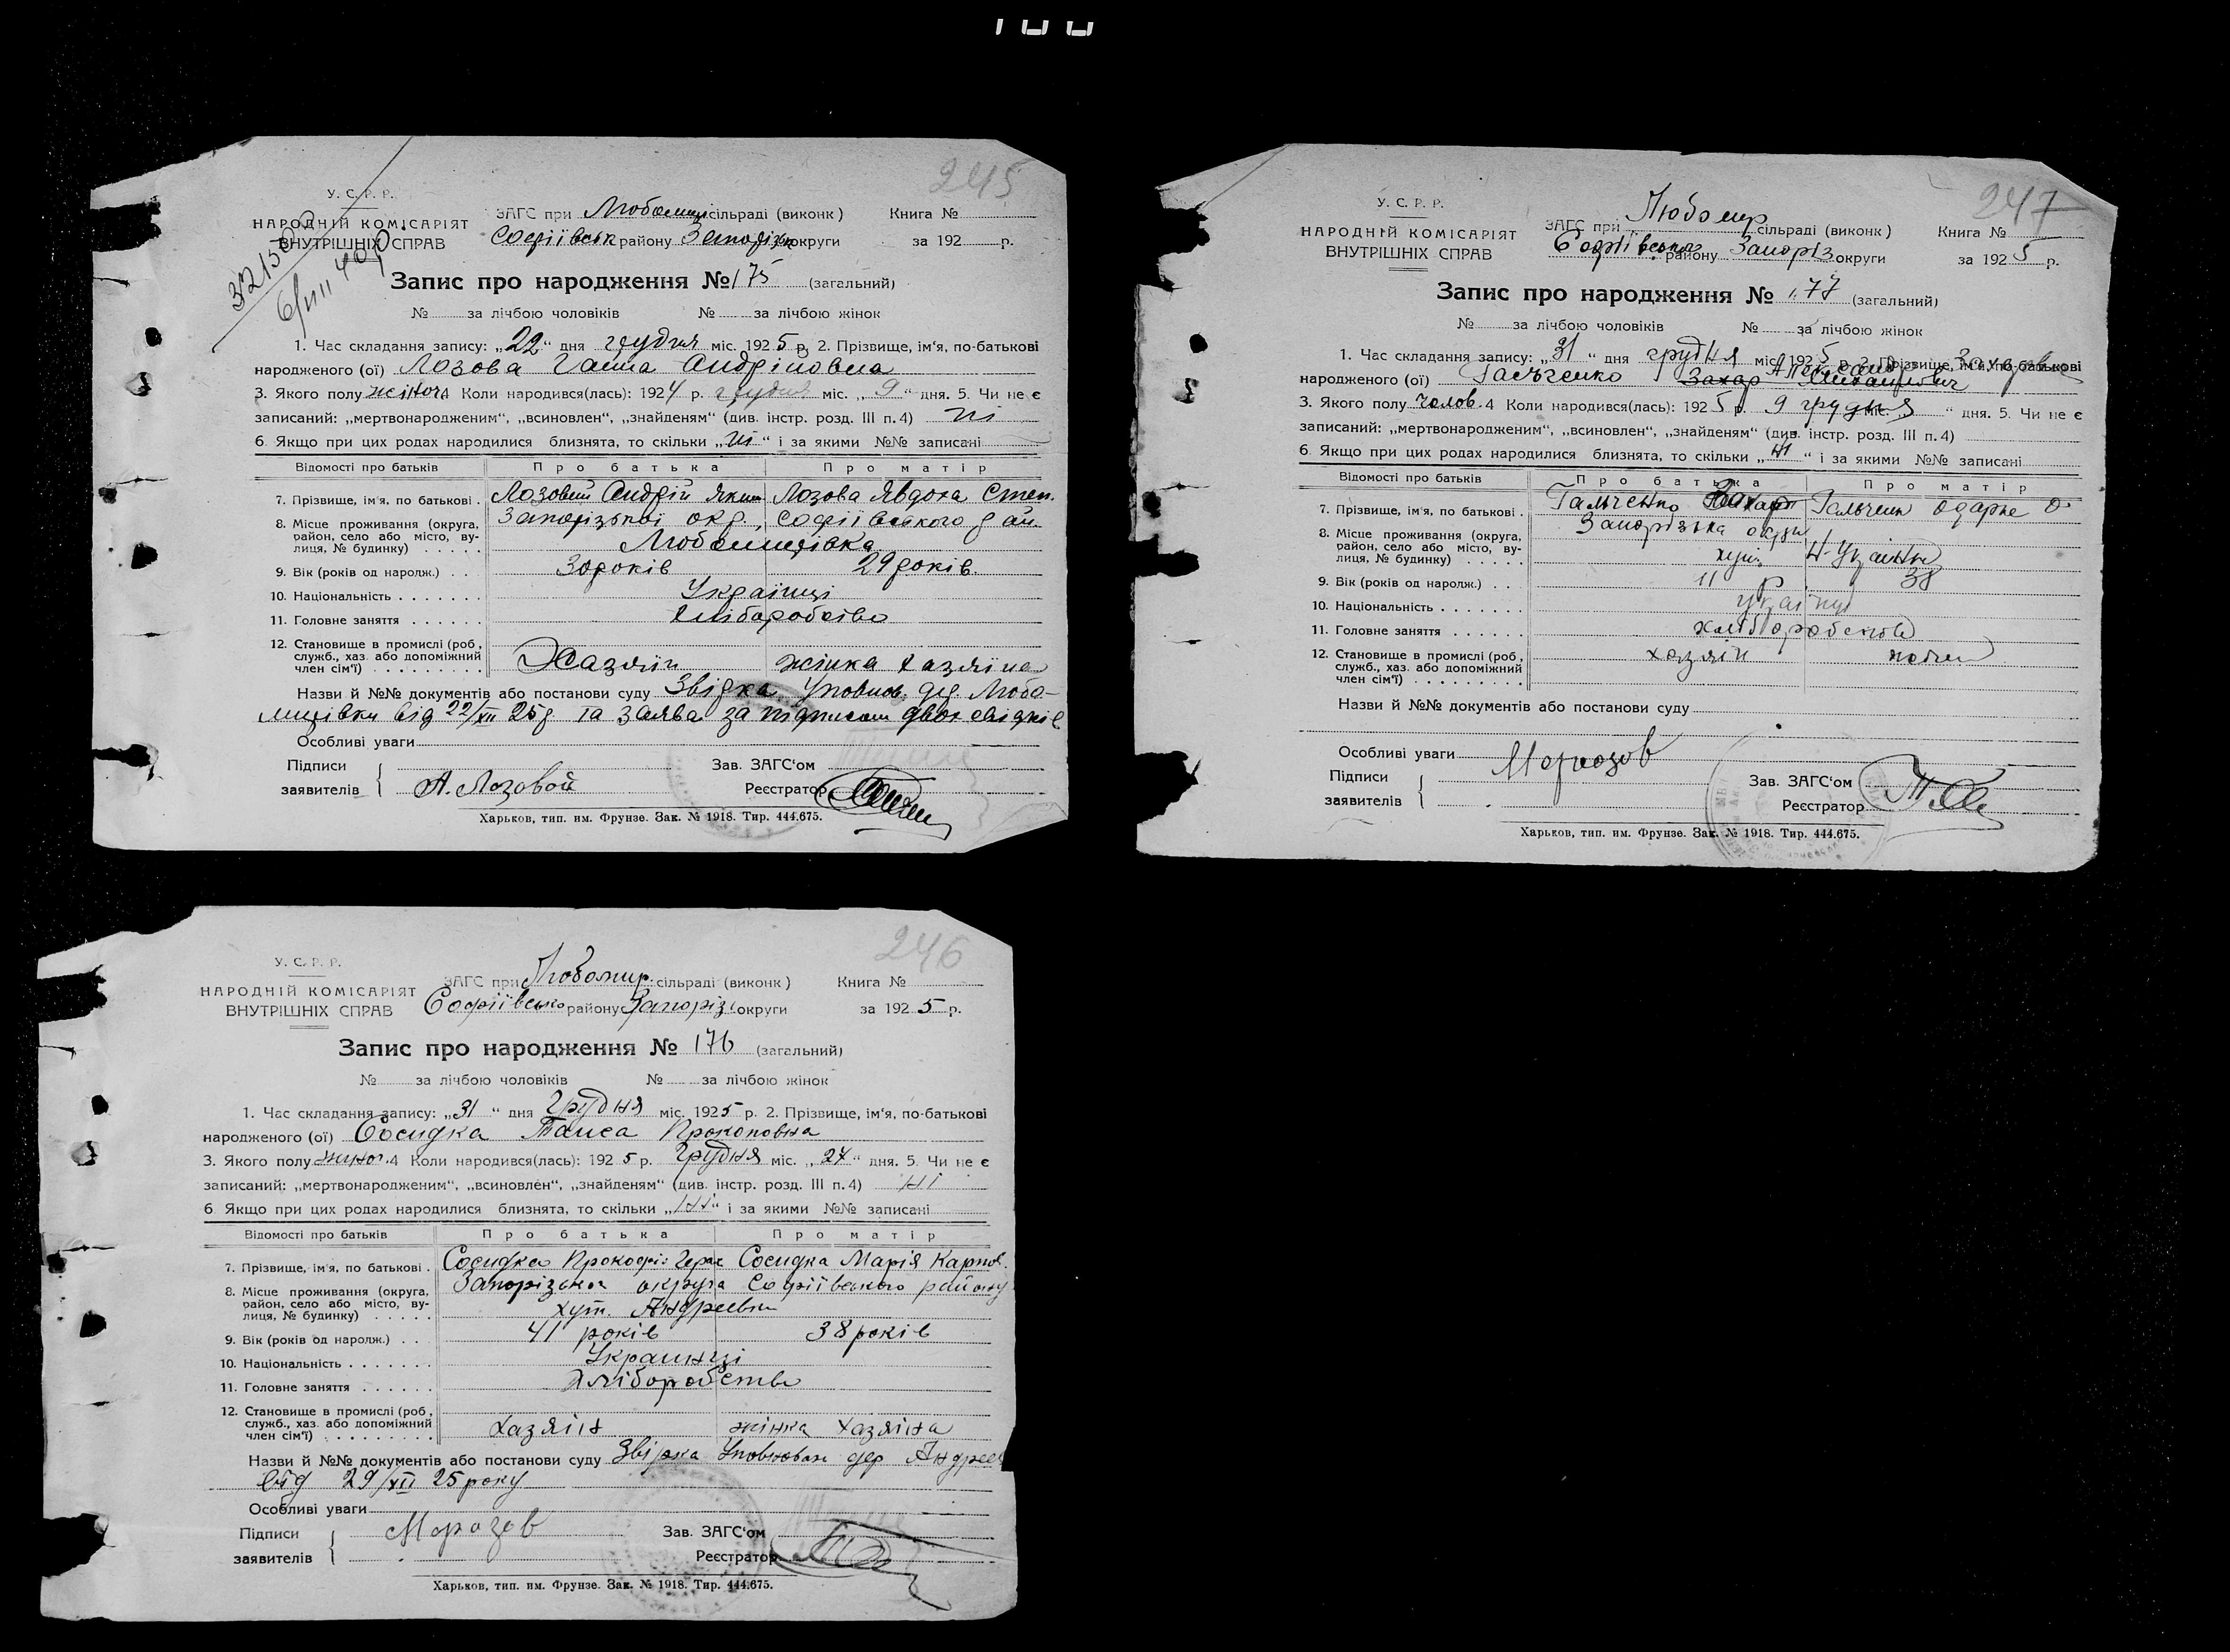 245
У. С. Р. Р.
НАРОДНІЙ КОМІСАРІЯТ
ВНУТРІШНІХ СПРАВ
ЗАГС при Любомир сільраді (виконк) Книга №
Софіївськ району Запорізьк округи за 192 р.
Запис про народження № 175 (загальний)
№ за лічбою чоловіків № за лічбою жінок
1. Час складання запису: „22“ дня грудня міс. 1925 р. 2. Прізвище, ім'я, по-батькові
народженого (ої) Лозова Ганна Андріповна
3. Якого полу жіноч. 4 Коли народився(лась): 1924 р. грудня міс. „9“ дня. 5. Чи не є
записаний: „мертвонародженим“, „всиновлен“, „знайденям“ (див. інстр. розд. III п. 4) ні
6 Якщо при цих родах народилися близнята, то скільки „ні“ і за якими №№ записані
Відомості про батьків Про батька Про матір
7. Прізвище, ім'я, по батькові . Лозовий Андрій Яким Лозова Явдоха Степ.
8. Місце проживання (округа, район, село або місто, вулиця, № будинку) Запорізької окр., Софіївського рай.
9. Вік (років од наролж.) . . 30 років 29 років.
10. Національність Українці
11. Головне заняття Хліборобство
12. Становище в промислі (роб, служб., хаз. або допоміжний член сім'ї) Хазяїн жінка хазяїна
Назви й №№ документів або постанови суду Звідка Уповнов. дер. Любо-
мирівки від 22/XII 25 р та заява за підписом двох свідків
Особливі уваги
Підписи заявителів А. Лозовой
Зав. ЗАГС'ом
Реєстратор
Харьков, тип. им. Фрунзе. Зак. № 1918. Тир. 444.675.
247
У. С. Р. Р.
НАРОДНІЙ КОМІСАРІЯТ
ВНУТРІШНІХ СПРАВ
ЗАГС при Любомир сільраді (виконк) Книга №
Софіївська району Запоріз округи за 1925 р.
Запис про народження № 177 (загальний)
№ за лічбою чоловіків № за лічбою жінок
1. Час складання запису: „31“ дня грудня міс. 1925 р. 2. Прізвище, ім'я, по-батькові
народженого (ої) Гальченко Захар
3. Якого полу чолов. 4 Коли народився(лась): 1925 р. 9 грудня міс. “ дня. 5. Чи не є
записаний: „мертвонародженим“, „всиновлен“, „знайденям“ (див. інстр. розд. III п. 4)
6. Якщо при цих родах народилися близнята, то скільки „ні“ і за якими №№ записані
Відомості про батьків Про батька Про матір
7. Прізвище, ім'я, по батькові . Гальченко Захар Гальченк Одарка
8. Місце проживання (округа, район, село або місто, вулиця, № будинку) Запорізька округи
9. Вік (років од наролж.) . . 38
10. Національність українці
11. Головне заняття хліборобство
12. Становище в промислі (роб, служб., хаз. або допоміжний член сім'ї) хазяїн
Назви й №№ документів або постанови суду
Особливі уваги
Підписи заявителів Морозов
Зав. ЗАГС'ом
Реєстратор
Харьков, тип. им. Фрунзе. Зак. № 1918. Тир. 444.675.
246
У. С. Р. Р.
НАРОДНІЙ КОМІСАРІЯТ
ВНУТРІШНІХ СПРАВ
ЗАГС при Любомир сільраді (виконк) Книга №
Софіївсько району Запоріз округи за 1925 р.
Запис про народження № 176 (загальний)
№ за лічбою чоловіків № за лічбою жінок
1. Час складання запису: „31“ дня Грудня міс. 1925 р. 2. Прізвище, ім'я, по-батькові
народженого (ої) Сосидка Таиса Прокоповна
3. Якого полу жиноч. 4 Коли народився(лась): 1925 р. Грудня міс. „27“ дня. 5. Чи не є
записаний: „мертвонародженим“, „всиновлен“, „знайденям“ (див. інстр. розд. III п. 4) ні
6 Якщо при цих родах народилися близнята, то скільки „ні“ і за якими №№ записані
Відомості про батьків Про батька Про матір
7. Прізвище, ім'я, по батькові . Сосидка Прокофій Герас Сосидка Марія Карпов.
8. Місце проживання (округа, район, село або місто, вулиця, № будинку) Запорізька округа Софіївського району
хут. Андреевка
9. Вік (років од наролж.) . . 41 років 38 років
10. Національність Украинці
11. Головне заняття Хліборобство
12. Становище в промислі (роб, служб., хаз. або допоміжний член сім'ї) хазяїн жінка хазяїна
Назви й №№ документів або постанови суду Звідка Уповноваж дер Андреев
від 29/XII 25 року
Особливі уваги
Підписи заявителів Морозов
Зав. ЗАГС'ом
Реєстратор
Харьков, тип. им. Фрунзе. Зак. № 1918. Тир. 444.675.